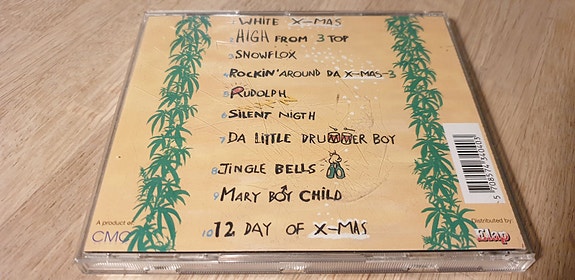 1 WHITE X-MAS
2 HIGH FROM 3 TOP
3 SNOWFLOX
4 ROCKIN' AROUND DA X-MAS-3
5 RUDOLPH
6 SILENT NIGTH
7 DA LITTLE DRUMMER BOY
8 JINGLE BELLS
9 MARY BOY CHILD
10 12 DAY OF X-MAS
A product of
CMC
5 708574 340403
Distributed by: